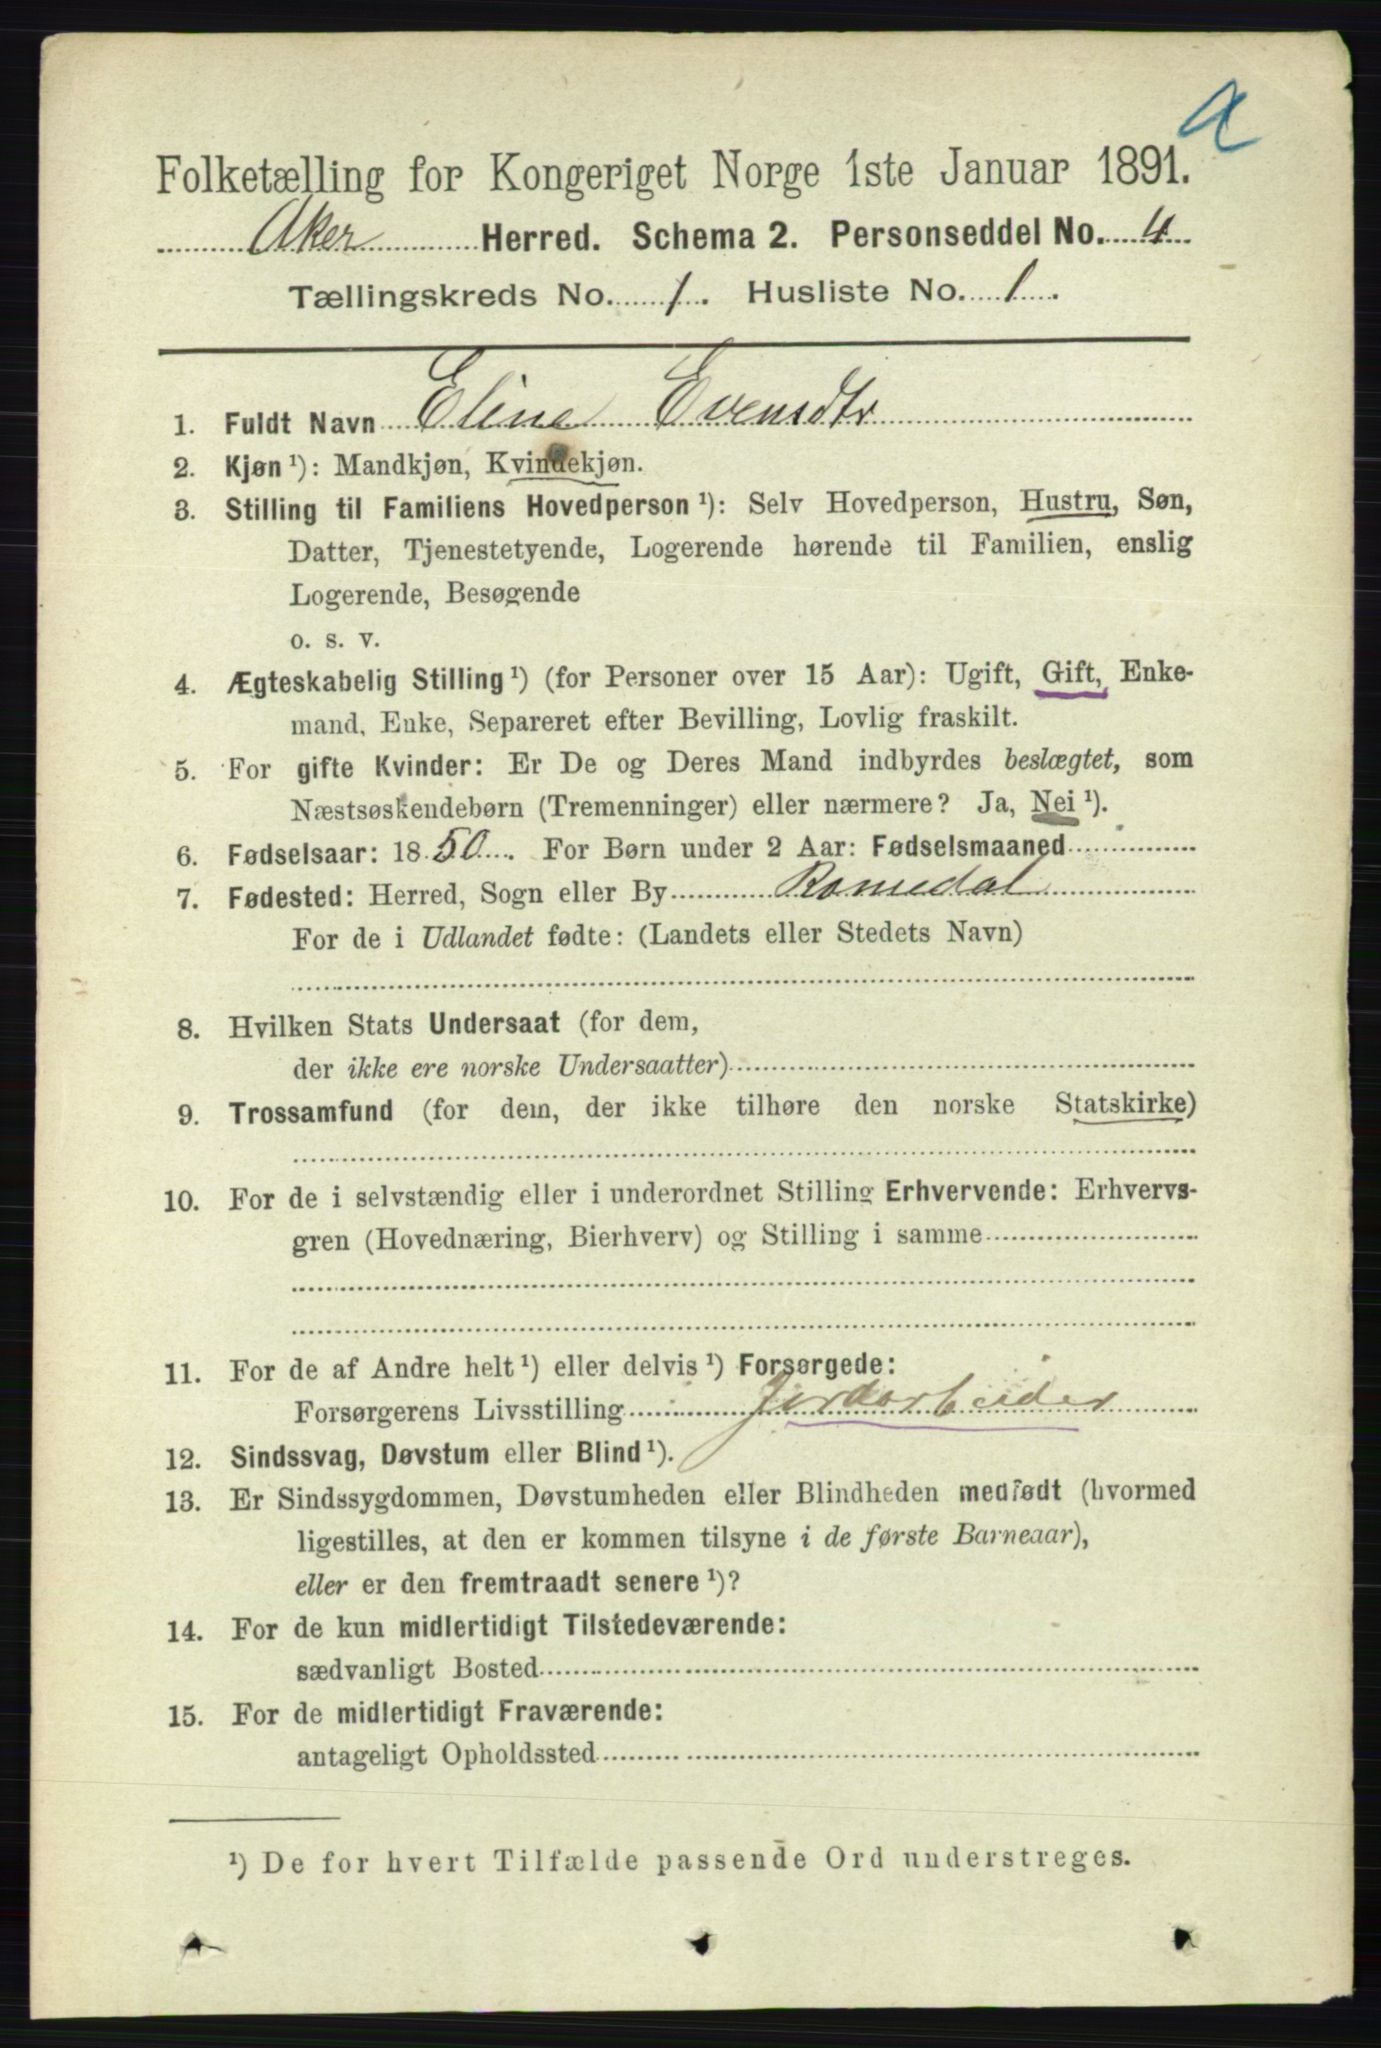 a
Folketælling for Kongeriget Norge 1ste Januar 1891.
Aker Herred. Schema 2. Personseddel No. 4
Tællingskreds No. 1. Husliste No. 1.
1. Fuldt Navn Eline Evensdtr
2. Kjøn ¹): Mandkjøn, Kvindekjøn.
3. Stilling til Familiens Hovedperson ¹): Selv Hovedperson, Hustru, Søn,
Datter, Tjenestetyende, Logerende hørende til Familien, enslig
Logerende, Besøgende
o. s. v.
4. Ægteskabelig Stilling ¹) (for Personer over 15 Aar): Ugift, Gift, Enke-
mand, Enke, Separeret efter Bevilling, Lovlig fraskilt.
5. For gifte Kvinder: Er De og Deres Mand indbyrdes beslægtet, som
Næstsøskendebørn (Tremenninger) eller nærmere? Ja, Nei ¹).
6. Fødselsaar: 1850. For Børn under 2 Aar: Fødselsmaaned
7. Fødested: Herred, Sogn eller By Romedal
For de i Udlandet fødte: (Landets eller Stedets Navn)
8. Hvilken Stats Undersaat (for dem,
der ikke ere norske Undersaatter)
9. Trossamfund (for dem, der ikke tilhøre den norske Statskirke)
10. For de i selvstændig eller i underordnet Stilling Erhvervende: Erhvervs-
gren (Hovednæring, Bierhverv) og Stilling i samme
11. For de af Andre helt ¹) eller delvis ¹) Forsørgede:
Forsørgerens Livsstilling Jordarbeider
12. Sindssvag, Døvstum eller Blind ¹).
13. Er Sindssygdommen, Døvstumheden eller Blindheden medfødt (hvormed
ligestilles, at den er kommen tilsyne i de første Barneaar),
eller er den fremtraadt senere ¹)?
14. For de kun midlertidigt Tilstedeværende:
sædvanligt Bosted
15. For de midlertidigt Fraværende:
antageligt Opholdssted
¹) De for hvert Tilfælde passende Ord understreges.